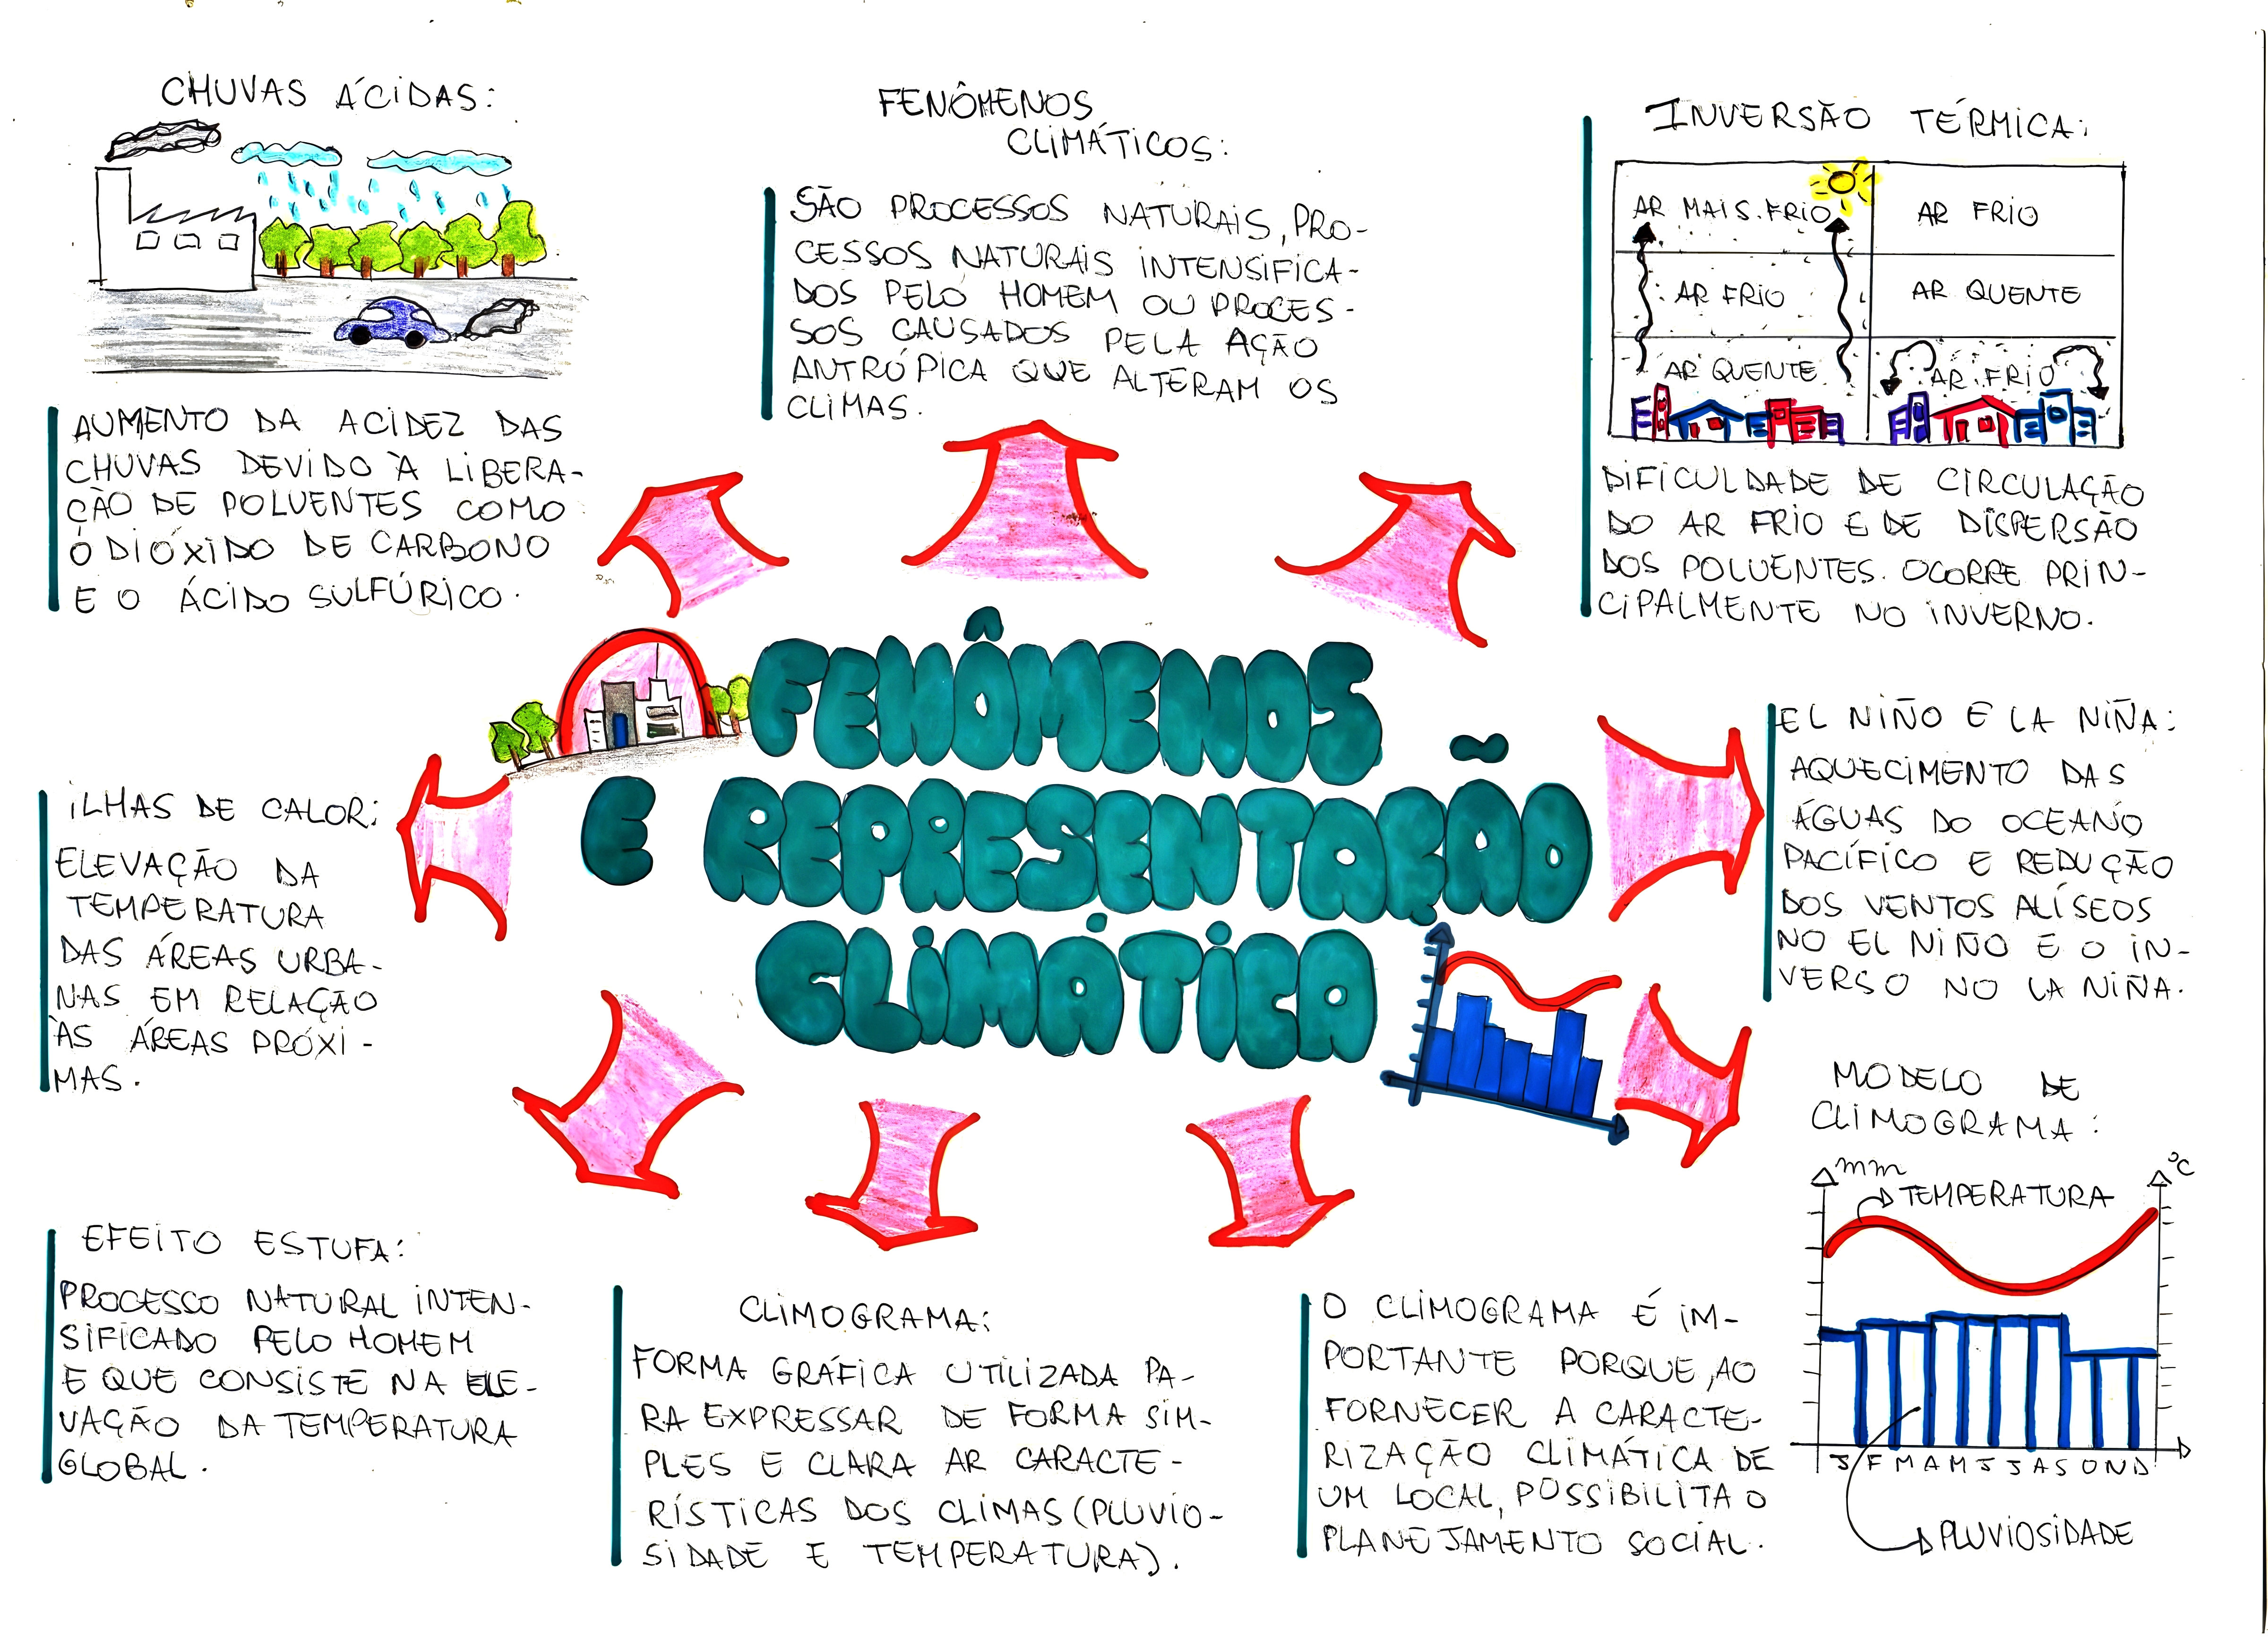 CHUVAS ÁCIDAS:
AUMENTO DA ACIDEZ DAS
CHUVAS DEVIDO À LIBERA-
ÇÃO DE POLUENTES COMO
O DIÓXIDO DE CARBONO
E O ÁCIDO SULFÚRICO.
FENÔMENOS
CLIMÁTICOS:
SÃO PROCESSOS NATURAIS, PRO-
CESSOS NATURAIS INTENSIFICA-
DOS PELO HOMEM OU PROCES-
SOS CAUSADOS PELA AÇÃO
ANTRÓPICA QUE ALTERAM OS
CLIMAS.
INVERSÃO TÉRMICA:
AR MAIS FRIO
AR FRIO
AR QUENTE
AR FRIO
AR QUENTE
AR FRIO
DIFICULDADE DE CIRCULAÇÃO
DO AR FRIO E DE DISPERSÃO
DOS POLUENTES. OCORRE PRIN-
CIPALMENTE NO INVERNO.
FENÔMENOS
E REPRESENTAÇÃO
CLIMÁTICA
ILHAS DE CALOR:
ELEVAÇÃO DA
TEMPERATURA
DAS ÁREAS URBA-
NAS EM RELAÇÃO
ÀS ÁREAS PRÓXI-
MAS.
EL NIÑO E LA NIÑA:
AQUECIMENTO DAS
ÁGUAS DO OCEANO
PACÍFICO E REDUÇÃO
DOS VENTOS ALÍSEOS
NO EL NIÑO E O IN-
VERSO NO LA NIÑA.
EFEITO ESTUFA:
PROCESSO NATURAL INTEN-
SIFICADO PELO HOMEM
E QUE CONSISTE NA ELE-
VAÇÃO DA TEMPERATURA
GLOBAL.
CLIMOGRAMA:
FORMA GRÁFICA UTILIZADA PA-
RA EXPRESSAR DE FORMA SIM-
PLES E CLARA AR CARACTE-
RÍSTICAS DOS CLIMAS (PLUVIO-
SIDADE E TEMPERATURA).
O CLIMOGRAMA É IM-
PORTANTE PORQUE, AO
FORNECER A CARACTE-
RIZAÇÃO CLIMÁTICA DE
UM LOCAL, POSSIBILITA O
PLANEJAMENTO SOCIAL.
MODELO DE
CLIMOGRAMA:
mm
°C
TEMPERATURA
J F M A M J J A S O N D
PLUVIOSIDADE